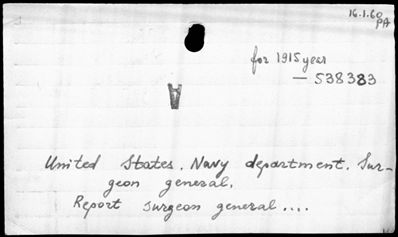 16.1.60
PA
for 1915 year
— 538383
United States. Navy department. Sur-
geon general.
Report surgeon general....